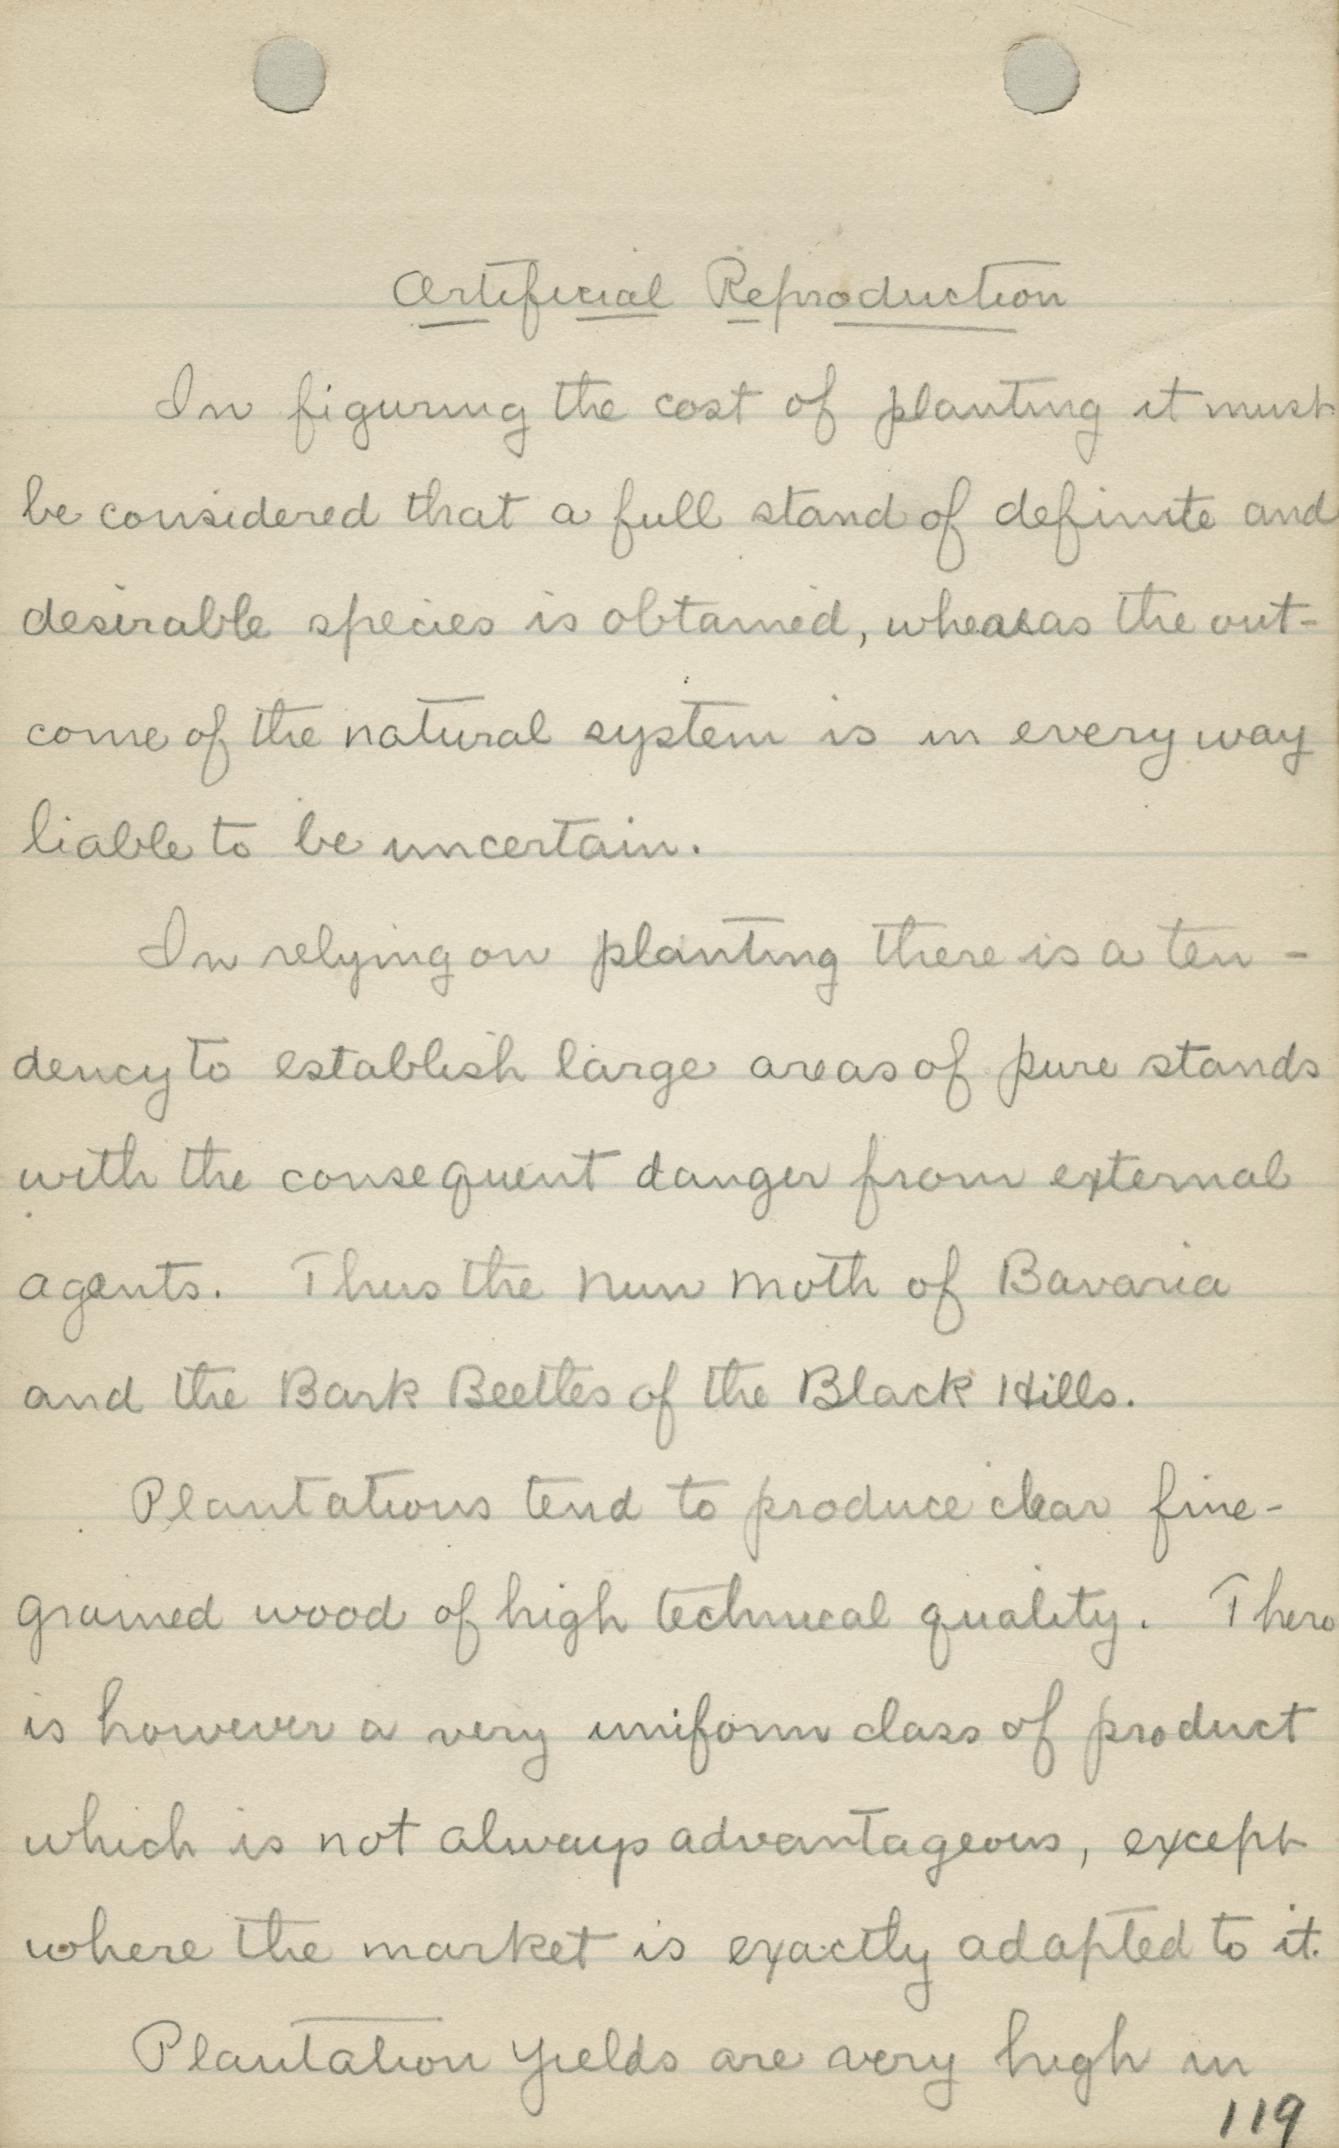 Artificial Reproduction
In figuring the cost of planting it must
be considered that a full stand of definite and
desirable species is obtained, wheasas the out-
come of the natural system is in every way
liable to be uncertain.
In relying on planting there is a ten-
dency to establish large areas of pure stands
with the consequent danger from external
agents. Thus the Nun Moth of Bavaria
and the Bark Beetles of the Black Hills.
Plantations tend to produce clear fine-
grained wood of high technical quality. There
is however a very uniform class of product
which is not always advantageous, except
where the market is exactly adapted to it.
Plantation yields are very high in
119